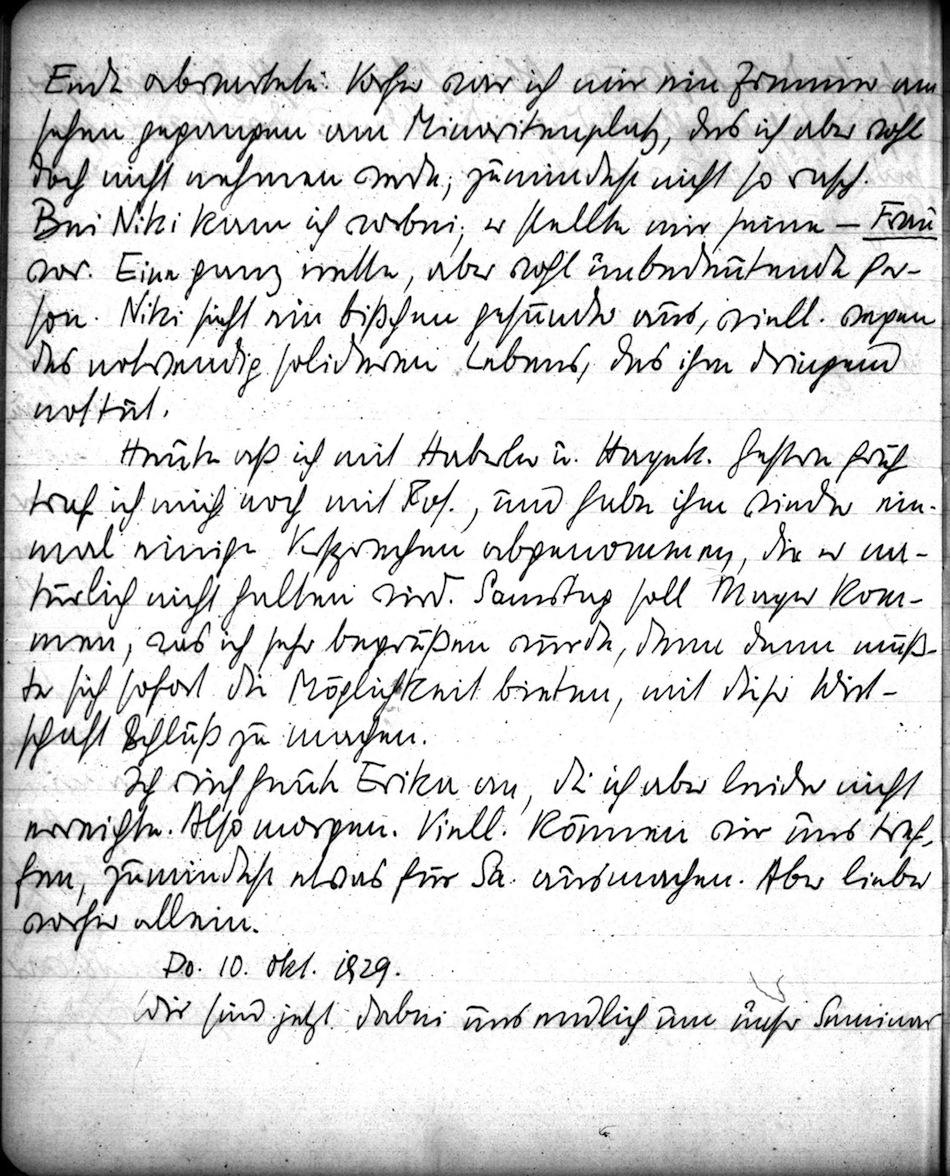 Ende abwartete. Vorher war ich mir ein Zimmer an
sehen gegangen am Minoritenplatz, das ich aber wohl
doch nicht nehmen werde, zumindest nicht so rasch.
Bei Niki kam ich vorbei, er stellte mir seine — Frau
vor. Eine ganz nette, aber wohl unbedeutende Per-
son. Niki sieht ein bißchen gesünder aus, viell. wegen
des notwendig solideren Lebens, das ihm dringend
nottut.
Heute aß ich mit Haberler u. Hayek. Gestern früh
traf ich mich noch mit Ros., und habe ihm wieder ein-
mal einige Versprechen abgenommen, die er na-
türlich nicht halten wird. Samstag soll Mayer kom-
men, was ich sehr begrüßen würde, denn dann müß-
te sich sofort die Möglichkeit bieten, mit dieser Wirt-
schaft Schluß zu machen.
Ich rief heute Erika an, die ich aber leider nicht
erreichte. Also morgen. Viell. können wir uns tref-
fen, zumindest etwas für Sa. ausmachen. Aber lieber
vorher allein.
Do. 10. Okt. 1929.
Wir sind jetzt dabei uns endlich um unser Seminar